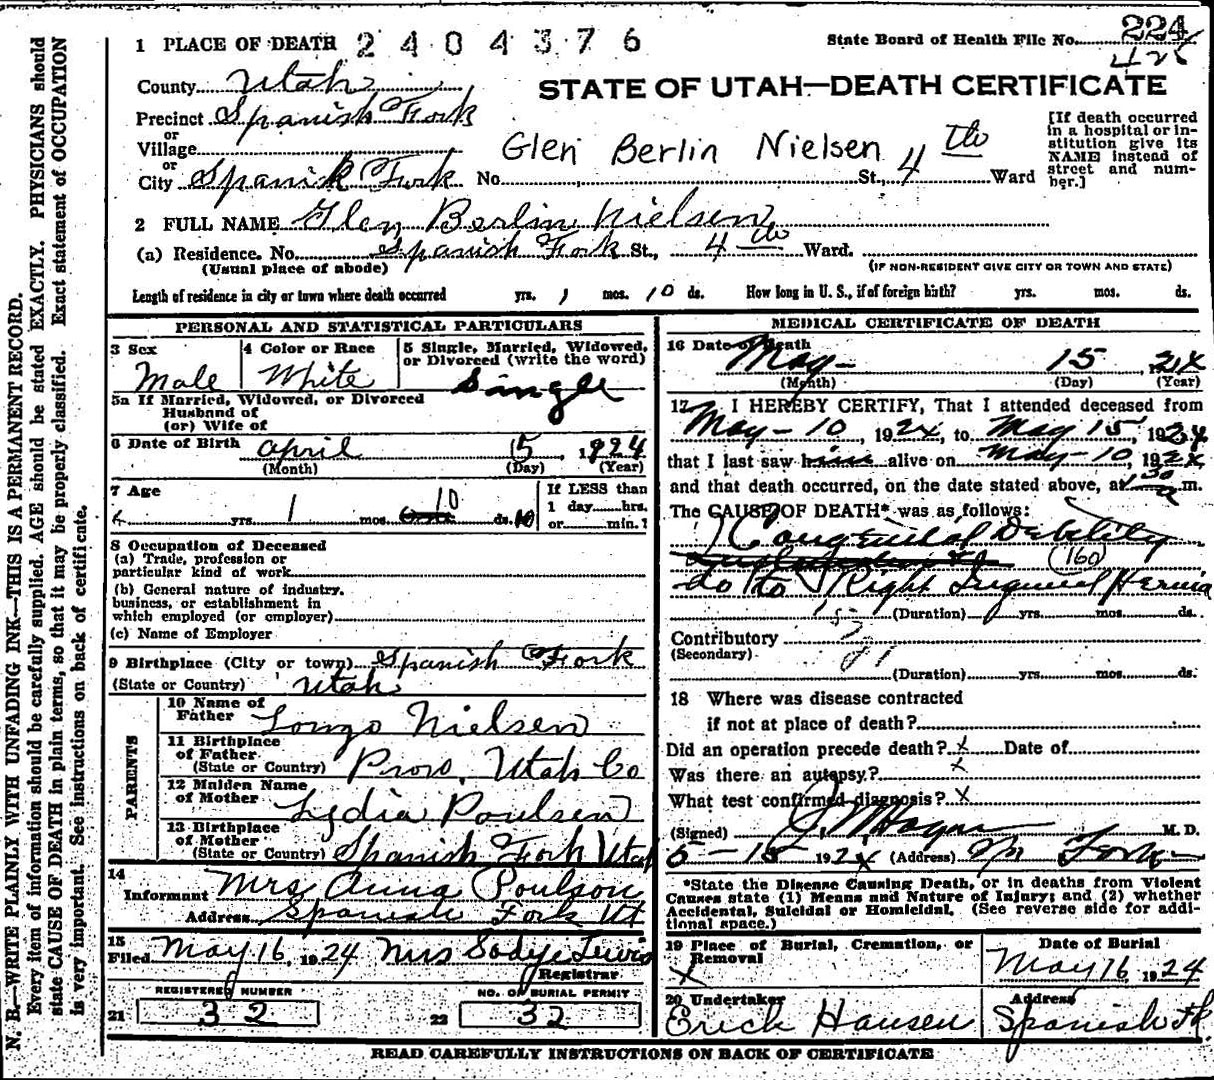 N. B.—WRITE PLAINLY WITH UNFADING INK—THIS IS A PERMANENT RECORD.
Every item of information should be carefully supplied. AGE should be stated EXACTLY. PHYSICIANS should
state CAUSE OF DEATH in plain terms, so that it may be properly classified. Exact statement of OCCUPATION
is very important. See instructions on back of certificate.
1 PLACE OF DEATH 2404376
State Board of Health File No. 224
425
County Utah
STATE OF UTAH—DEATH CERTIFICATE
Precinct Spanish Fork
or
Village
or
City Spanish Fork No. St., 4 th Ward
Glen Berlin Nielsen
[If death occurred
in a hospital or in-
stitution give its
NAME instead of
street and num-
ber.]
2 FULL NAME Glen Berlin Nielsen
(a) Residence. No. Spanish Fork St., 4 th Ward.
(Usual place of abode) (IF NON-RESIDENT GIVE CITY OR TOWN AND STATE)
Length of residence in city or town where death occurred yrs. 1 mos. 10 ds. How long in U. S., if of foreign birth? yrs. mos. ds.
PERSONAL AND STATISTICAL PARTICULARS
3 Sex Male
4 Color or Race White
5 Single, Married, Widowed,
or Divorced (write the word)
Single
5a If Married, Widowed, or Divorced
Husband of
(or) Wife of
6 Date of Birth April 5, 1924
(Month) (Day) (Year)
7 Age
yrs. 1 mos. 10 ds. 10
If LESS than
1 day hrs.
or min.?
8 Occupation of Deceased
(a) Trade, profession or
particular kind of work
(b) General nature of industry.
business, or establishment in
which employed (or employer)
(c) Name of Employer
9 Birthplace (City or town) Spanish Fork
(State or Country) Utah
PARENTS
10 Name of
Father Lonzo Nielsen
11 Birthplace
of Father
(State or Country) Provo, Utah Co
12 Maiden Name
of Mother Lydia Poulsen
13 Birthplace
of Mother
(State or Country) Spanish Fork Utah
14
Informant Mrs Anna Poulson
Address Spanish Fork Ut
15
Filed May 16, 1924 Mrs Sadye Lewis
Registrar
REGISTERED NUMBER
21 32
NO. OF BURIAL PERMIT
22 32
MEDICAL CERTIFICATE OF DEATH
16 Date of Death May 15, 24
(Month) (Day) (Year)
17 I HEREBY CERTIFY, That I attended deceased from
May-10, 1924, to May 15, 1924
that I last saw him alive on May-10, 1924
and that death occurred, on the date stated above, at 1 30 a m.
The CAUSE OF DEATH* was as follows:
1) Congenital Debility
160
do to Right Inguinal Hernia
(Duration) yrs. mos. ds.
Contributory
(Secondary)
(Duration) yrs. mos. ds.
18 Where was disease contracted
if not at place of death?
Did an operation precede death? x Date of
Was there an autopsy? x
What test confirmed diagnosis? x
(Signed) J. M. Hagan M. D.
5-15 1924 (Address) Sp Fork
*State the Disease Causing Death, or in deaths from Violent
Causes state (1) Means and Nature of Injury; and (2) whether
Accidental, Suicidal or Homicidal. (See reverse side for addi-
tional space.)
19 Place of Burial, Cremation, or
Removal
x
Date of Burial
May 16 1924
20 Undertaker
Erick Hansen
Address
Spanish Fk
READ CAREFULLY INSTRUCTIONS ON BACK OF CERTIFICATE